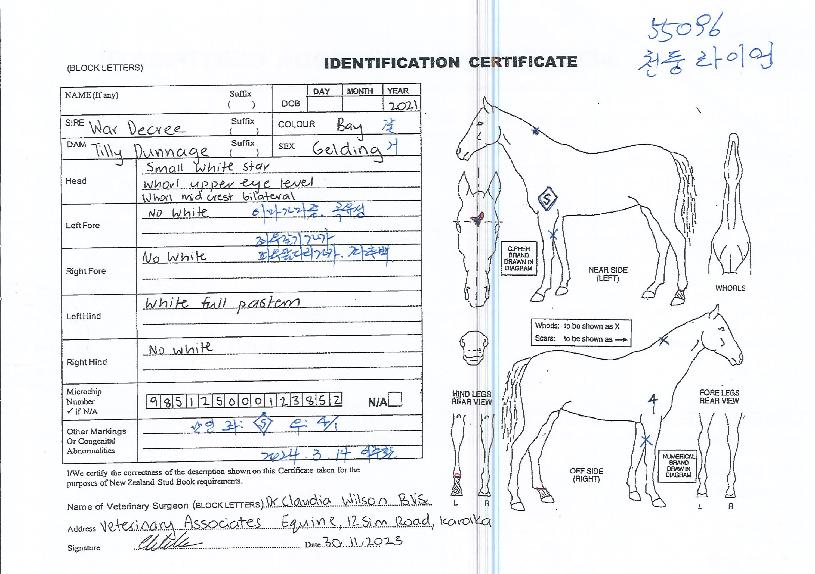 55096
천둥라이언
(BLOCK LETTERS)
IDENTIFICATION CERTIFICATE
NAME (If any) Suffix ( ) DOB DAY MONTH YEAR 2021
SIRE War Decree Suffix ( ) COLOUR Bay 갈
DAM Tilly Dunnage Suffix ( ) SEX Gelding 거
Head Small white star
whorl upper eye level
Whorl mid crest bilateral
Left Fore No White
Right Fore No White
Left Hind White full pastern
Right Hind No white
Microchip Number ✓ if N/A 985125000123852 N/A
Other Markings Or Congenital Abnormalities
2024. 3. 14
I/We certify the correctness of the description shown on this Certificate taken for the
purposes of New Zealand Stud Book requirements.
Name of Veterinary Surgeon (BLOCK LETTERS) Dr Claudia Wilson B.V.S.
Address Veterinary Associates Equine, 12 Sim Road, Karaka
Signature Date 30.11.2023
S
CIPHER BRAND DRAWN IN DIAGRAM
NEAR SIDE
(LEFT)
WHORLS
Whorls: to be shown as X
Scars: to be shown as →
HIND LEGS
REAR VIEW
L R
4
1
OFF SIDE
(RIGHT)
NUMERICAL BRAND DRAWN IN DIAGRAM
FORE LEGS
REAR VIEW
L R